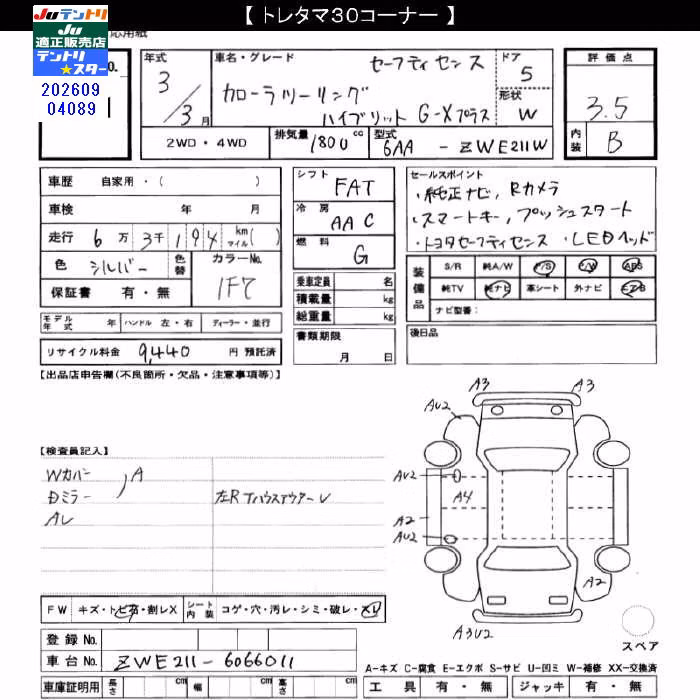 【 トレタマ30コーナー 】
JU テントリ
JU
適正販売店
テントリ
★スター
応用紙
No.
202609
04089
年式
3
3月
車名・グレード
セーフティ センス
カローラツーリング
ハイブリット G-Xプラス
ドア
5
形状
W
評価点
3.5
2WD・4WD
排気量 1800 cc
型式 6AA - ZWE211W
内装 B
車歴 自家用・( )
車検 年 月
走行 6万 3千 194 km マイル( )
色 シルバー 色替 カラーNo. 1F7
保証書 有・無
シフト FAT
冷房 AAC
燃料 G
セールスポイント
・純正ナビ, Rカメラ
・スマートキー, プッシュスタート
・トヨタセーフティセンス ・LEDヘッド
装備品 S/R 純A/W P/S P/W ABS
純TV 純ナビ 革シート 外ナビ エアB
ナビ型番:
乗車定員 名
積載量 kg
総重量 kg
モデル年式 年 ハンドル 左・右 ディーラー・並行
リサイクル料金 9,440 円 預託済
書類期限
月 日
後日品
【出品店申告欄(不良箇所・欠品・注意事項等)】
A3 A3
AU2
【検査員記入】
Wカバー
Dミラー ) A
AL
左R Tハウスアウター レ
AU2
A4
A2
AU2
A2
A3U2
FW キズ・トビ石・割レX シート内装 コゲ・穴・汚レ・シミ・破レ・スレ
登録No.
車台No. ZWE211-6066011
スペア
A-キズ C-腐食 E-エクボ S-サビ U-凹ミ W-補修 XX-交換済
車庫証明用 長さ cm 幅 cm 高さ cm
工具 有・無 ジャッキ 有・無